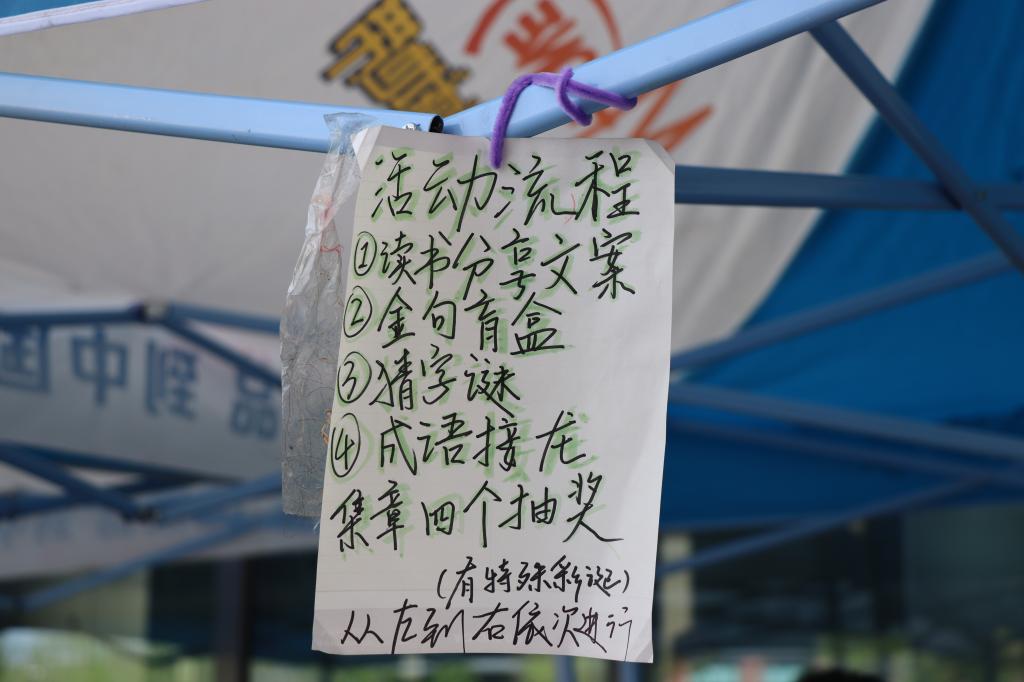 活动流程
①读书分享文案
②金句盲盒
③猜字谜
④成语接龙
集章四个抽奖
(有特殊彩诞)
从左到右依次进行
到中国